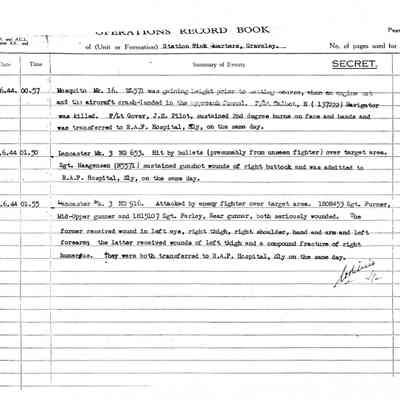 OPERATIONS RECORD BOOK
of (Unit or Formation) Station Sick Quarters, Graveley.
No. of pages used for
Date Time Summary of Events SECRET.
.6.44. 00.57 Mosquito Mk. 16. was gaining height prior to setting course, when an engine cut
and the aircraft crash-landed in the approach funnel. F/Lt Talbot, N Navigator
was killed. F/Lt Gover, J.E. Pilot, sustained 2nd degree burns on face and hands and
was transferred to R.A.F. Hospital, Ely, on the same day.
.6.44 01.50 Lancaster Mk. 3 ND 653. Hit by bullets (presumably from unseen fighter) over target area.
Sgt. Haagensen sustained gunshot wounds of right buttock and was admitted to
R.A.F. Hospital, Ely, on the same day.
.6.44 01.55 Lancaster Mk. 3 916. Attacked by enemy fighter over target area. 1808459 Sgt.
Mid-Upper gunner and 1815107 Sgt. Farley, Rear gunner, both seriously wounded. The
former received wound in left eye, right thigh, right shoulder, hand and arm and left
forearm; the latter received wounds of left thigh and a compound fracture of right
humerus. They were both transferred to R.A.F. Hospital, Ely on the same day.